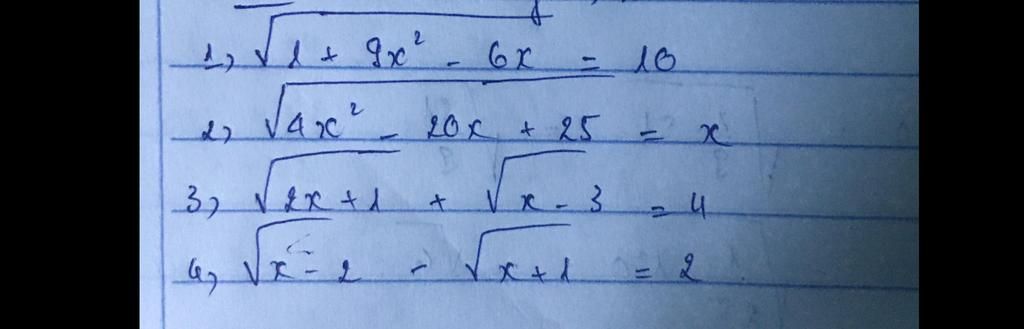 1, √1 + 9x² - 6x = 10
2, √4x² - 20x + 25 = x
3, √2x + 1 + √x - 3 = 4
4, √x - 2 - √x + 1 = 2